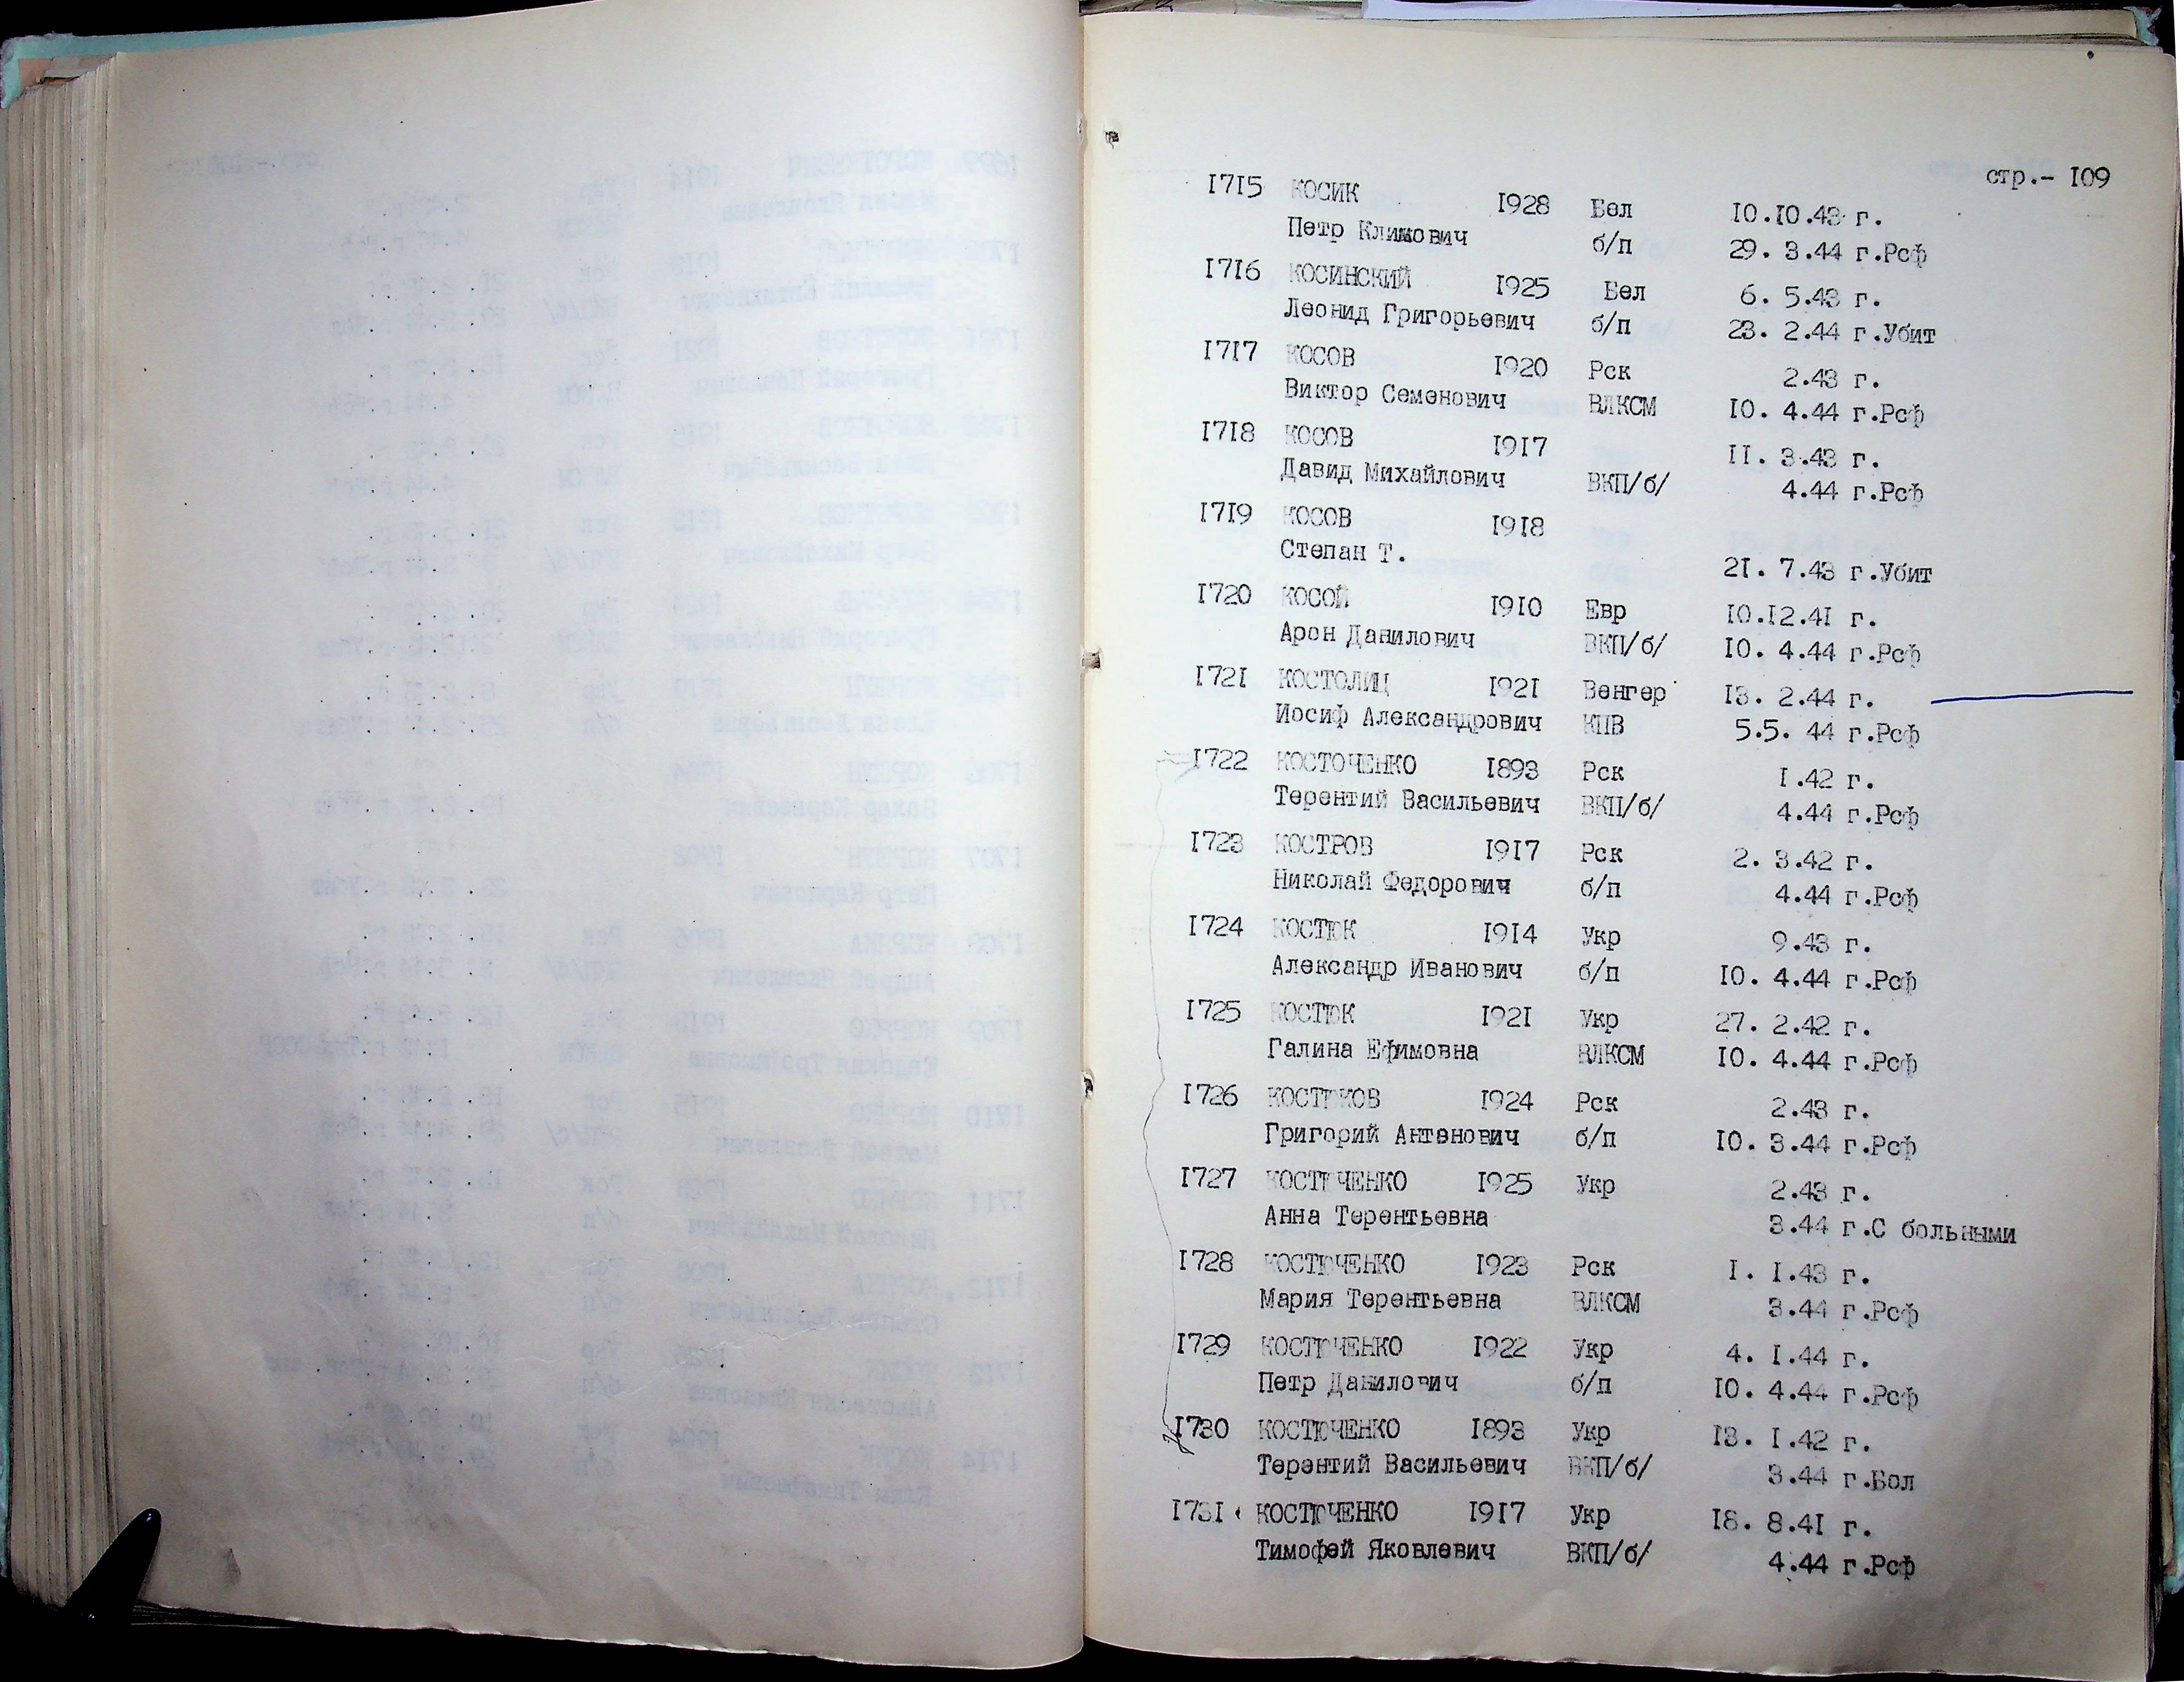 стр.- I09
I7I5 КОСИК I928 Бел I0.I0.43 г.
Петр Климович б/п 29. 3.44 г.Рсф
I7I6 КОСИНСКИЙ I925 Бел 6. 5.43 г.
Леонид Григорьевич б/п 23. 2.44 г.Убит
I7I7 КОСОВ I920 Рск 2.43 г.
Виктор Семенович ВЛКСМ I0. 4.44 г.Рсф
I7I8 КОСОВ I9I7 II. 3.43 г.
Давид Михайлович ВКП/б/ 4.44 г.Рсф
I7I9 КОСОВ I9I8
Степан Т. 2I. 7.43 г.Убит
I720 КОСОЙ I9I0 Евр I0.I2.4I г.
Арон Данилович ВКП/б/ I0. 4.44 г.Рсф
I72I КОСТОЛИЦ I92I Венгер I3. 2.44 г.
Иосиф Александрович КПВ 5.5. 44 г.Рсф
I722 КОСТОЧЕНКО I893 Рск I.42 г.
Терентий Васильевич ВКП/б/ 4.44 г.Рсф
I723 КОСТРОВ I9I7 Рск 2. 3.42 г.
Николай Федорович б/п 4.44 г.Рсф
I724 КОСТЮК I9I4 Укр 9.43 г.
Александр Иванович б/п I0. 4.44 г.Рсф
I725 КОСТЮК I92I Укр 27. 2.42 г.
Галина Ефимовна ВЛКСМ I0. 4.44 г.Рсф
I726 КОСТЮКОВ I924 Рск 2.43 г.
Григорий Антонович б/п I0. 3.44 г.Рсф
I727 КОСТЮЧЕНКО I925 Укр 2.43 г.
Анна Терентьевна 3.44 г.С больными
I728 КОСТЮЧЕНКО I923 Рск I. I.43 г.
Мария Терентьевна ВЛКСМ 3.44 г.Рсф
I729 КОСТЮЧЕНКО I922 Укр 4. I.44 г.
Петр Данилович б/п I0. 4.44 г.Рсф
I730 КОСТЮЧЕНКО I893 Укр I3. I.42 г.
Терентий Васильевич ВКП/б/ 3.44 г.Бол
I73I КОСТЮЧЕНКО I9I7 Укр I8. 8.4I г.
Тимофей Яковлевич ВКП/б/ 4.44 г.Рсф